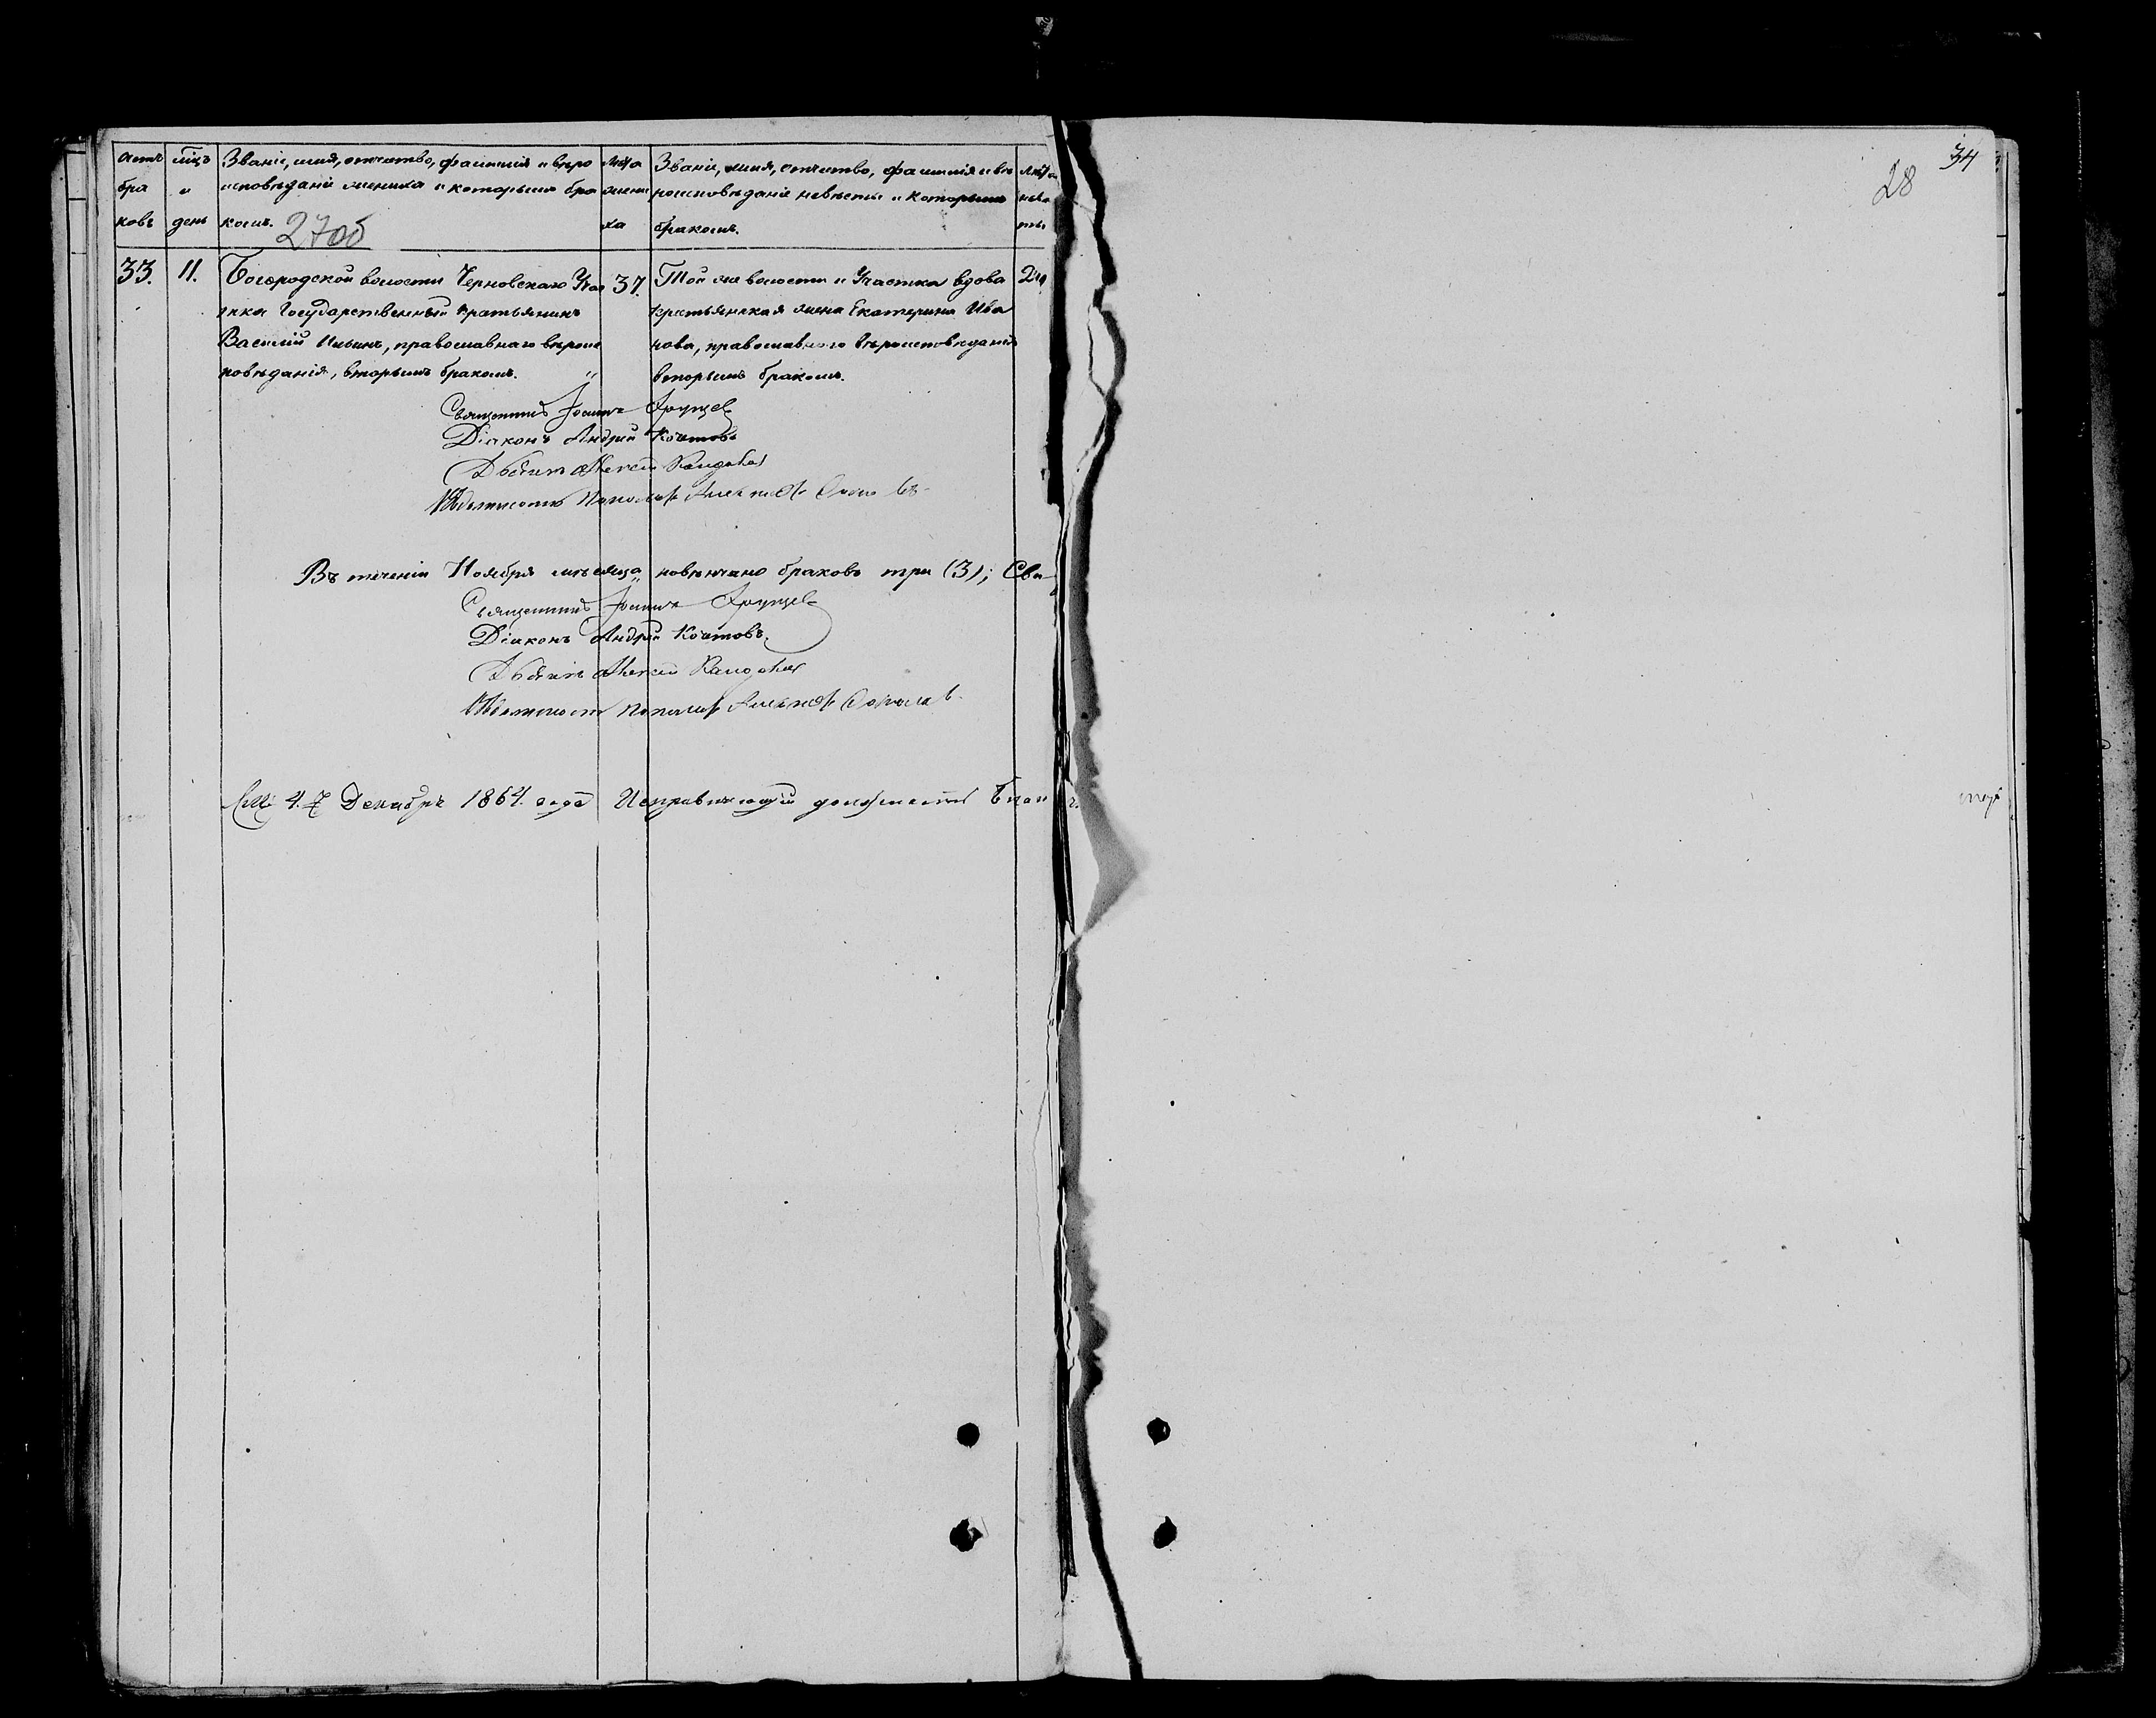 34
28
Актъ бра ковъ
мѣсцъ и день
Званіе, имя, отчество, фамилія и вѣро
исповѣданіе жениха и которымъ бра
комъ.
270б
лѣта жени ха
Званіе, имя, отчество, фамилія и вѣ
роисповѣданіе невѣсты и которымъ
бракомъ.
лѣта невѣ сты
33.
11.
Богородской волости Черновскаго Учас
тка Государственный крестьянинъ
Василій Ильинъ, православнаго вѣроис
повѣданія, вторымъ бракомъ.
37.
Той же волости и Участка вдова
крестьянская жена Екатерина Ива
нова, православнаго вѣроисповѣданія
вторымъ бракомъ.
Священникъ Іоаннъ
Діаконъ Андрей
Дьячекъ Алексѣй
Пономаря
Въ теченіи Ноября мѣсяца повѣнчано браковъ три (3); Сви
Священникъ Іоаннъ
Діаконъ Андрей
Дьячекъ Алексѣй
Пономаря
4. Декабря 1864. года Исправляющій должность Благ